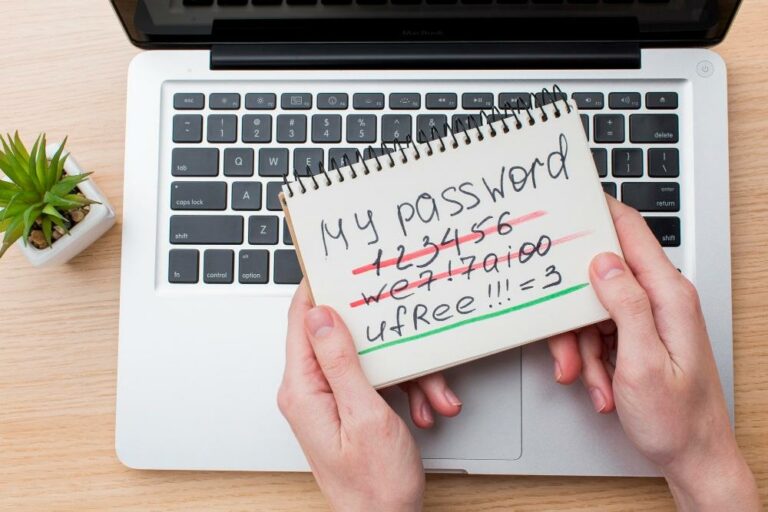 MacBook
esc
! 1
@ 2
# 3
$ 4
% 5
+ =
delete
tab
Q
W
E
R
caps lock
A
S
enter
return
shift
Z
shift
fn
control
option
My password
123456
we7!7aioo
ufRee!!!=3